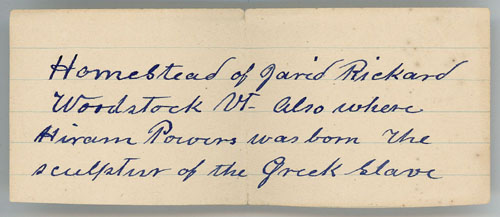 Homestead of Jarid Rickard
Woodstock Vt- also where
Hiram Powers was born The
sculptur of the Greek Slave